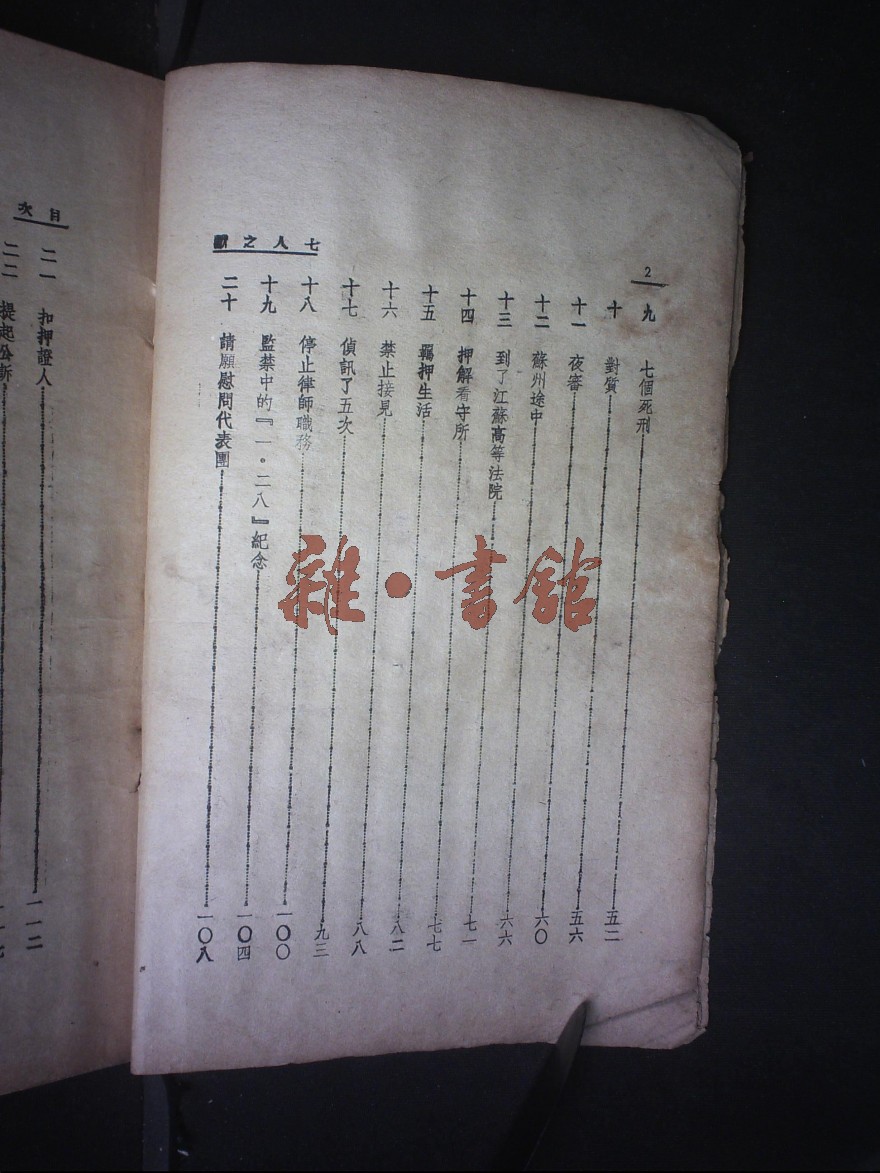 2
七人之
九 七個死刑 五二
十 對質 五六
十一 夜審 六〇
十二 蘇州途中 六六
十三 到了江蘇高等法院 七一
十四 押解看守所 七七
十五 羈押生活 八二
十六 禁止接見 八八
十七 偵訊了五次 九三
十八 停止律師職務 一〇〇
十九 監禁中的『一·二八』紀念 一〇四
二十 請願慰問代表團 一〇八
目次
二一 扣押證人 一一二
二二 提起公訴
雜·書館